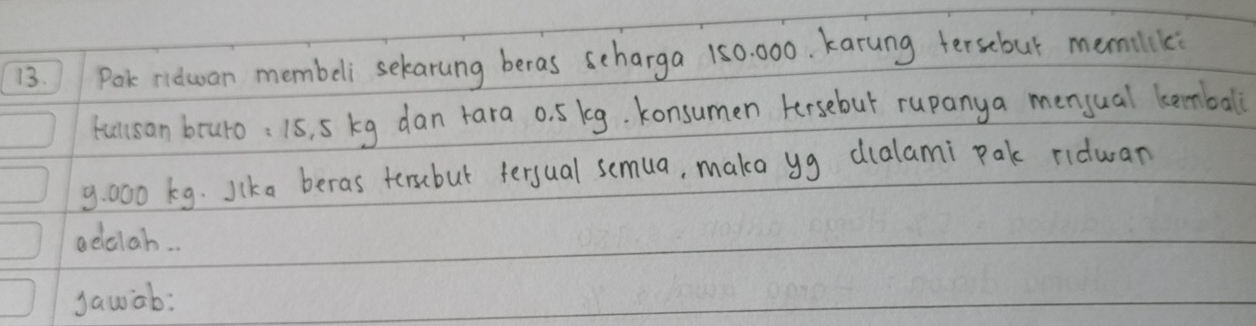 13. Pak ridwan membeli sekarung beras seharga 150.000. karung tersebut memiliki
tulisan bruto : 15,5 kg dan tara 0.5 kg. konsumen tersebut rupanya menjual kembali
9.000 kg. Jika beras tersebut terjual semua, maka yg dialami pak ridwan
adalah..
Jawab: